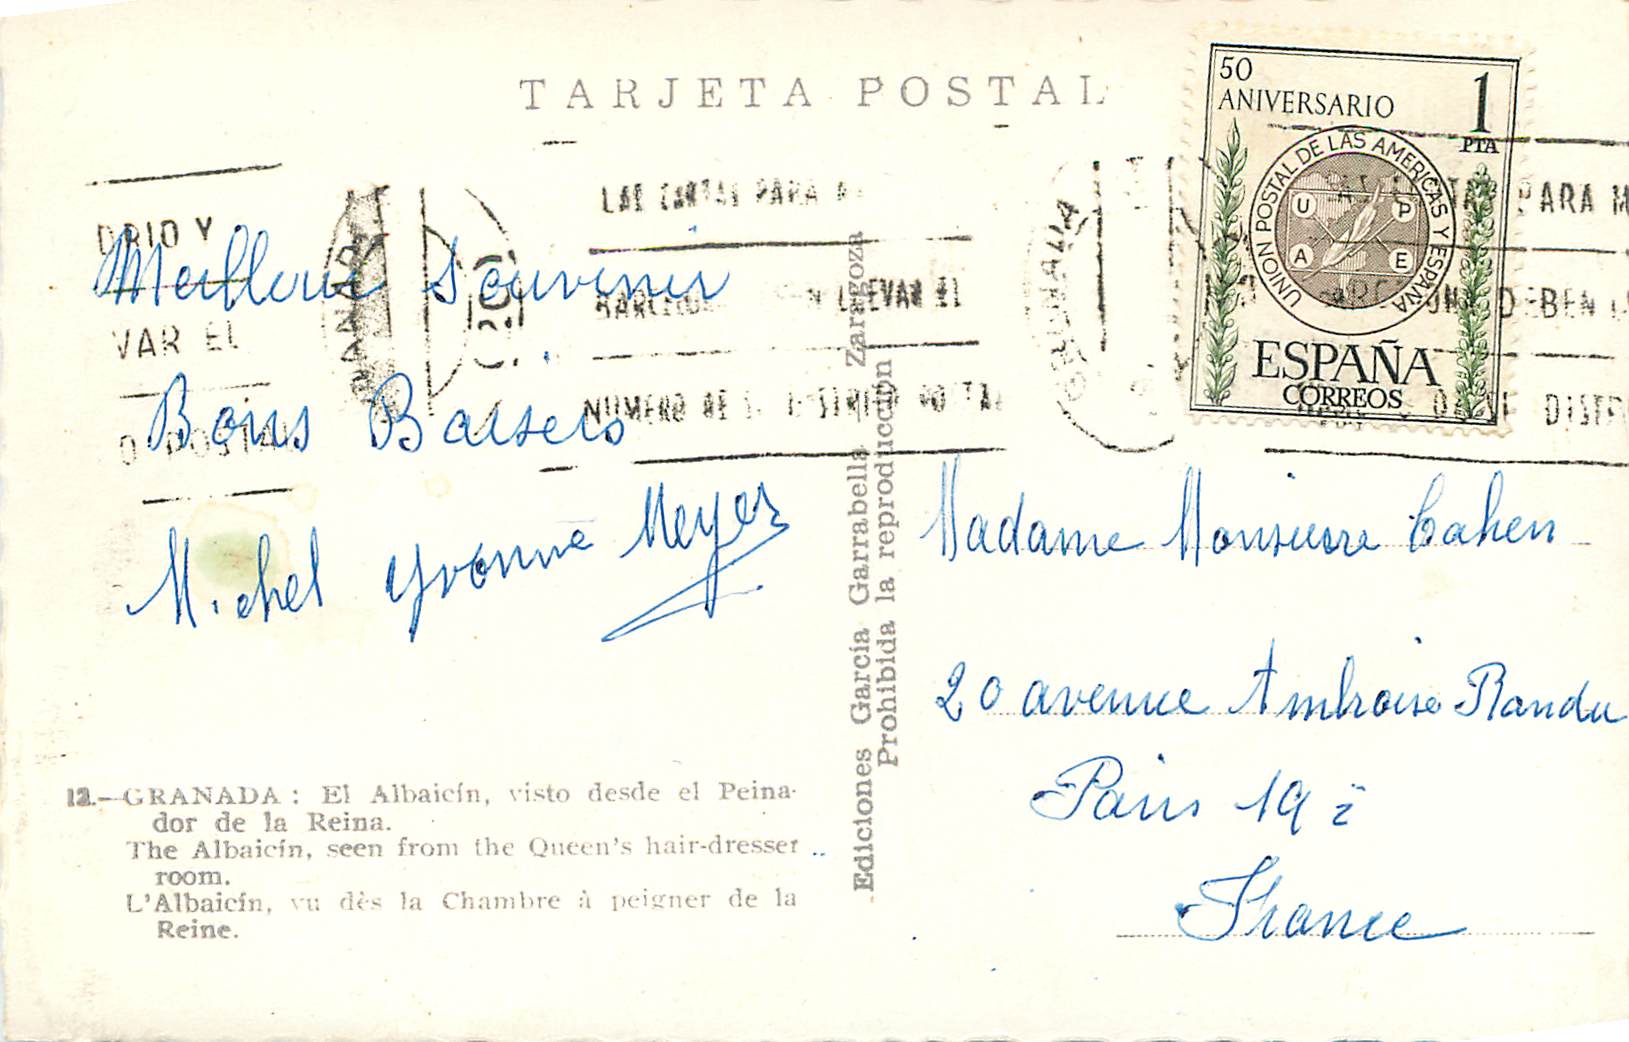 TARJETA POSTAL
50
ANIVERSARIO
1
PTA
UNION POSTAL DE LAS AMERICAS Y ESPAÑA
U P
A E
ESPAÑA
CORREOS
DRID Y
VAR EL
O POSTAL
LAS CARTAS PARA
BARCELONA LLEVAR EL
NUMERO DE
PARA M
DEBEN
DISTR
Meilleur Souvenir
Bons Baisers
Michel Yvonne Meyer
Madame Monsieur Cahen
20 avenue Ambroise Randu
Paris 19 è
France
Ediciones García Garrabella - Zaragoza
Prohibida la reproducción
12.—GRANADA: El Albaicín, visto desde el Peina-
dor de la Reina.
The Albaicín, seen from the Queen's hair-dresser
room.
L'Albaicín, vu dès la Chambre à peigner de la
Reine.